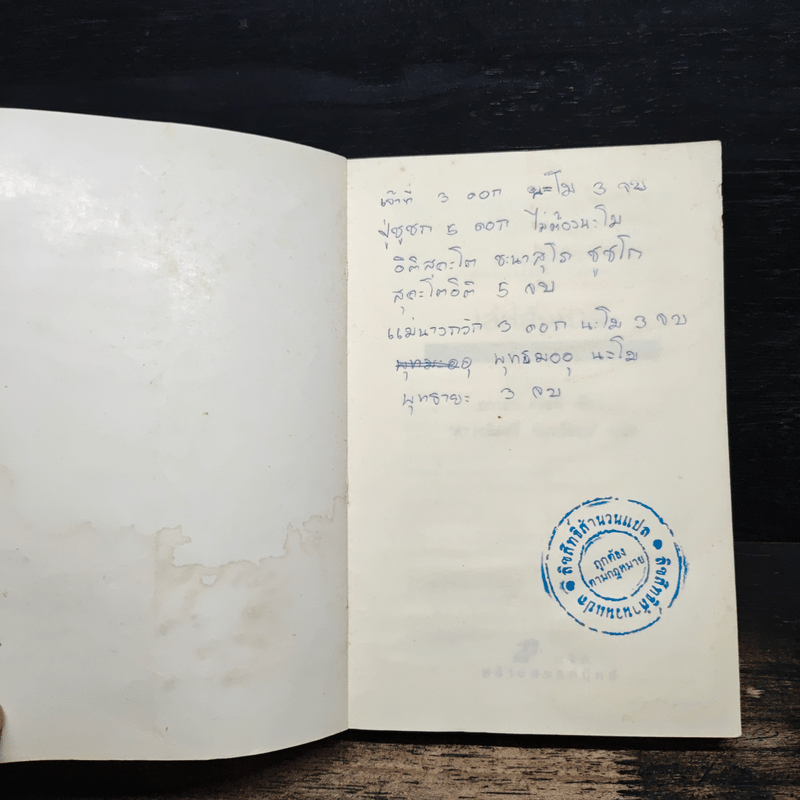 เจ้าที่ 3 ดอก นะโม 3 จบ
ปู่ชูชก 5 ดอก ไม่ต้องนะโม
อิติสุคะโต ชะนาสุโภ ชูชโก
สุคะโตอิติ 5 จบ
แม่นางกวัก 3 ดอก นะโม 3 จบ
พุทธมออุ นะโม
พุทธายะ 3 จบ
ลิขสิทธิ์สำนวนแปล
ลิขสิทธิ์สำนวนแปล
ถูกต้อง
ตามกฎหมาย